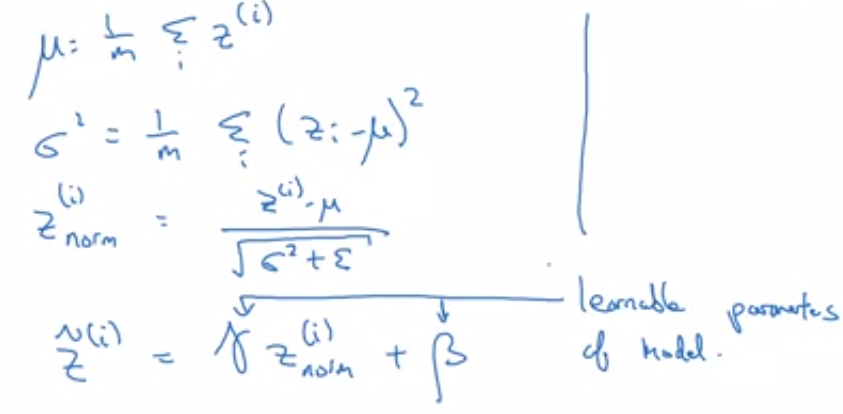 μ = 1/m Σ_i z^(i)
σ² = 1/m Σ_i (z_i - μ)²
z^(i)_norm = (z^(i) - μ) / √(σ² + ε)
z̃^(i) = γ z^(i)_norm + β
learnable parameters
of model.